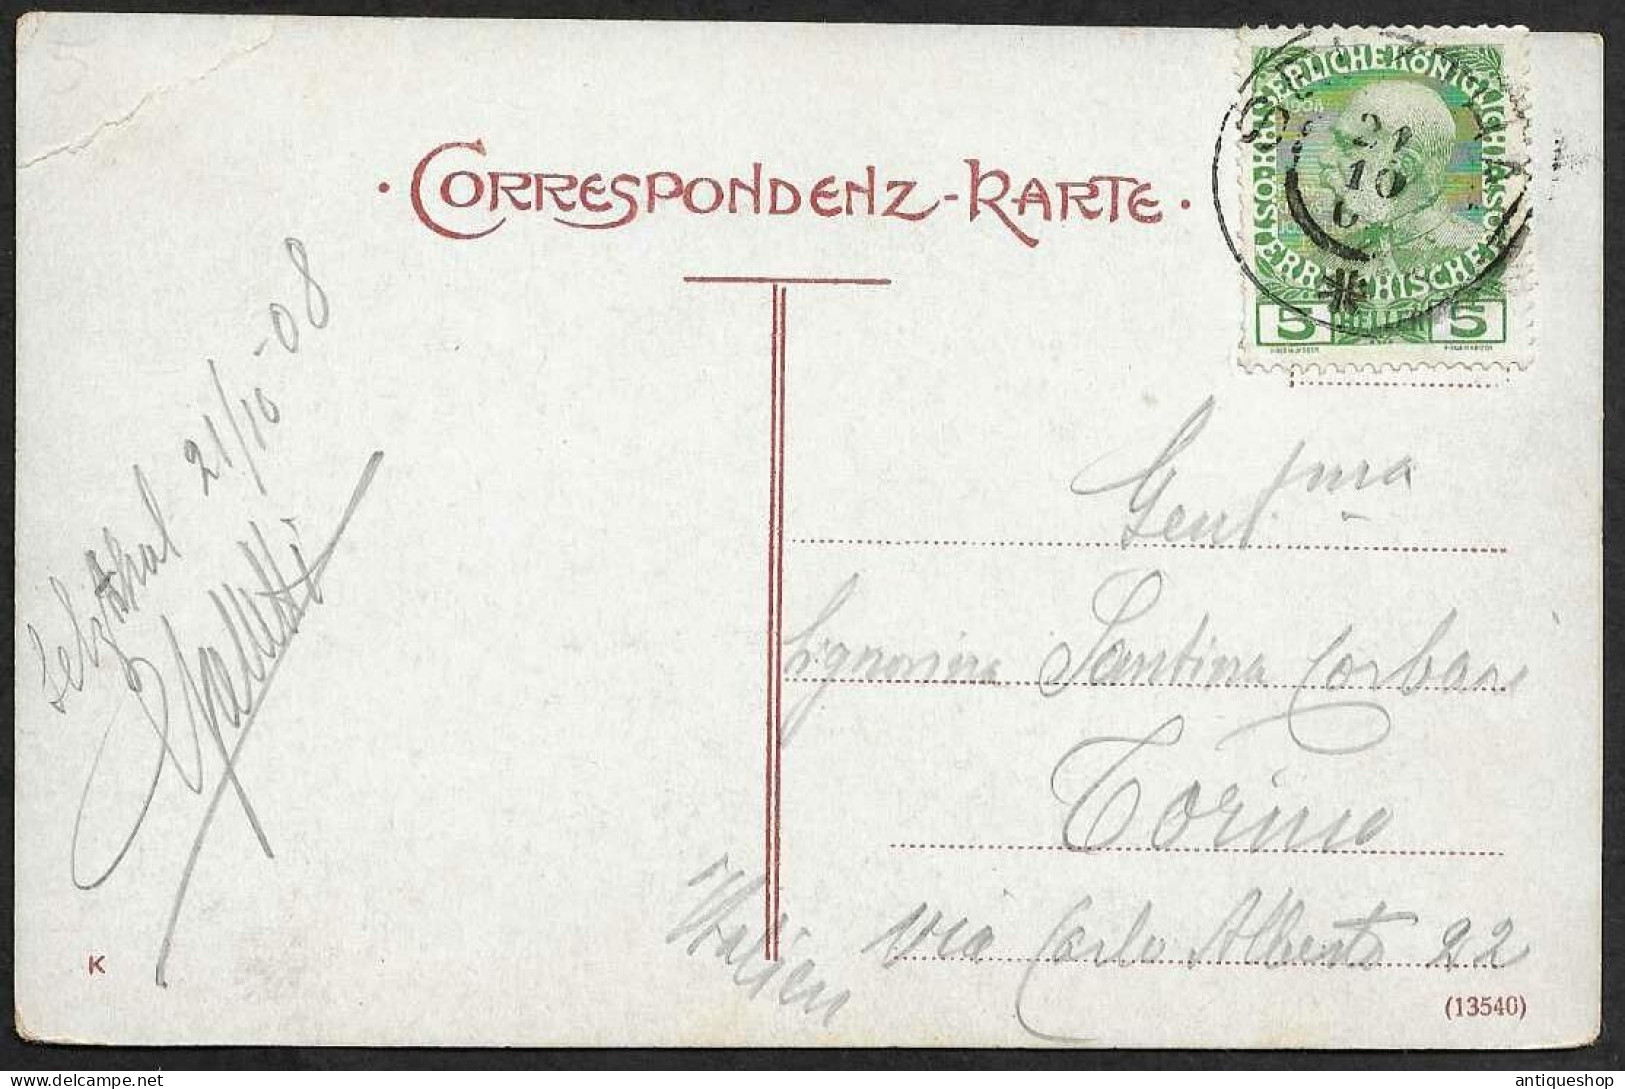 · CORRESPONDENZ-KARTE ·
KAISERLICHE KÖNIGLICHE
ÖSTERREICHISCHE POST
5 HELLER 5
21
10
Selzthal 21/10-08
Gent. ma
Signorina Santina Corbari
Torino
Via Carlo Alberto 22
Italien
K
(13540)
antiqueshop